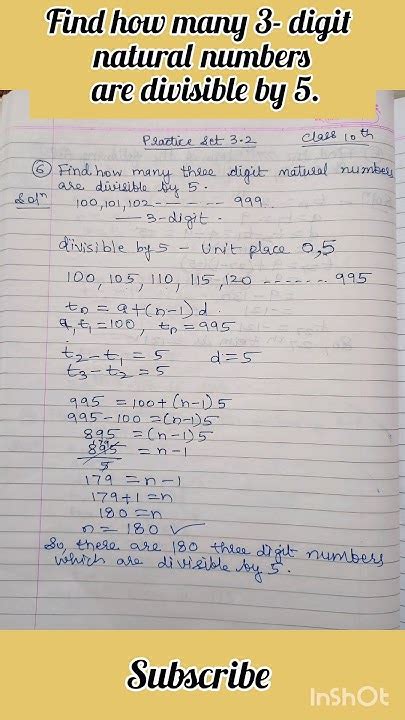 Find how many 3- digit
natural numbers
are divisible by 5.
Practice Set 3.2 Class 10th
6 Find how many three digit natural numbers
are divisible by 5.
Solⁿ 100,101,102 - - - - - - - 999
3-digit.
divisible by 5 - Unit place 0,5
100, 105, 110, 115, 120 - - - - - - - 995
tn = a+(n-1)d.
a, t1=100, tn=995
t2-t1 = 5 d=5
t3-t2=5
995 = 100+(n-1)5
995-100 =(n-1)5
895 =(n-1)5
179
895 = n-1
5
179 = n-1
179+1 =n
180 =n
n = 180 ✓
So, there are 180 three digit numbers
which are divisible by 5.
Subscribe
InShOt